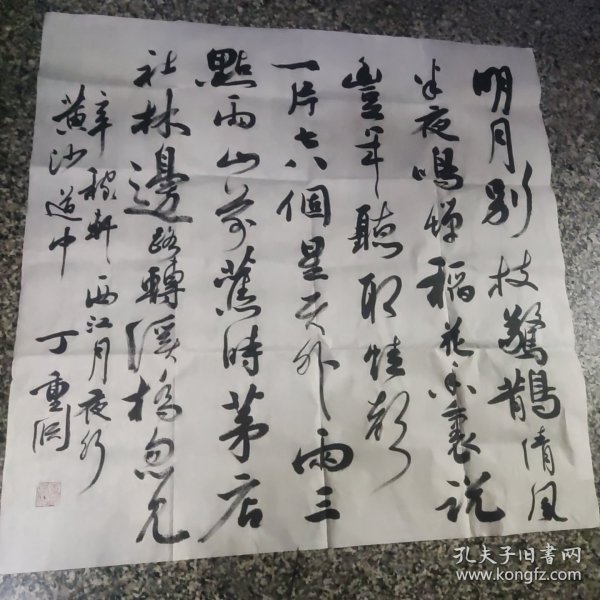 明月別枝驚鵲清風
半夜鳴蟬稻花香裏說
豐年聽取蛙聲
一片七八個星天外兩三
點雨山前舊時茅店
社林邊路轉溪橋忽見
辛稼軒西江月夜行
黃沙道中
丁重
孔夫子旧书网
www.kongfz.com